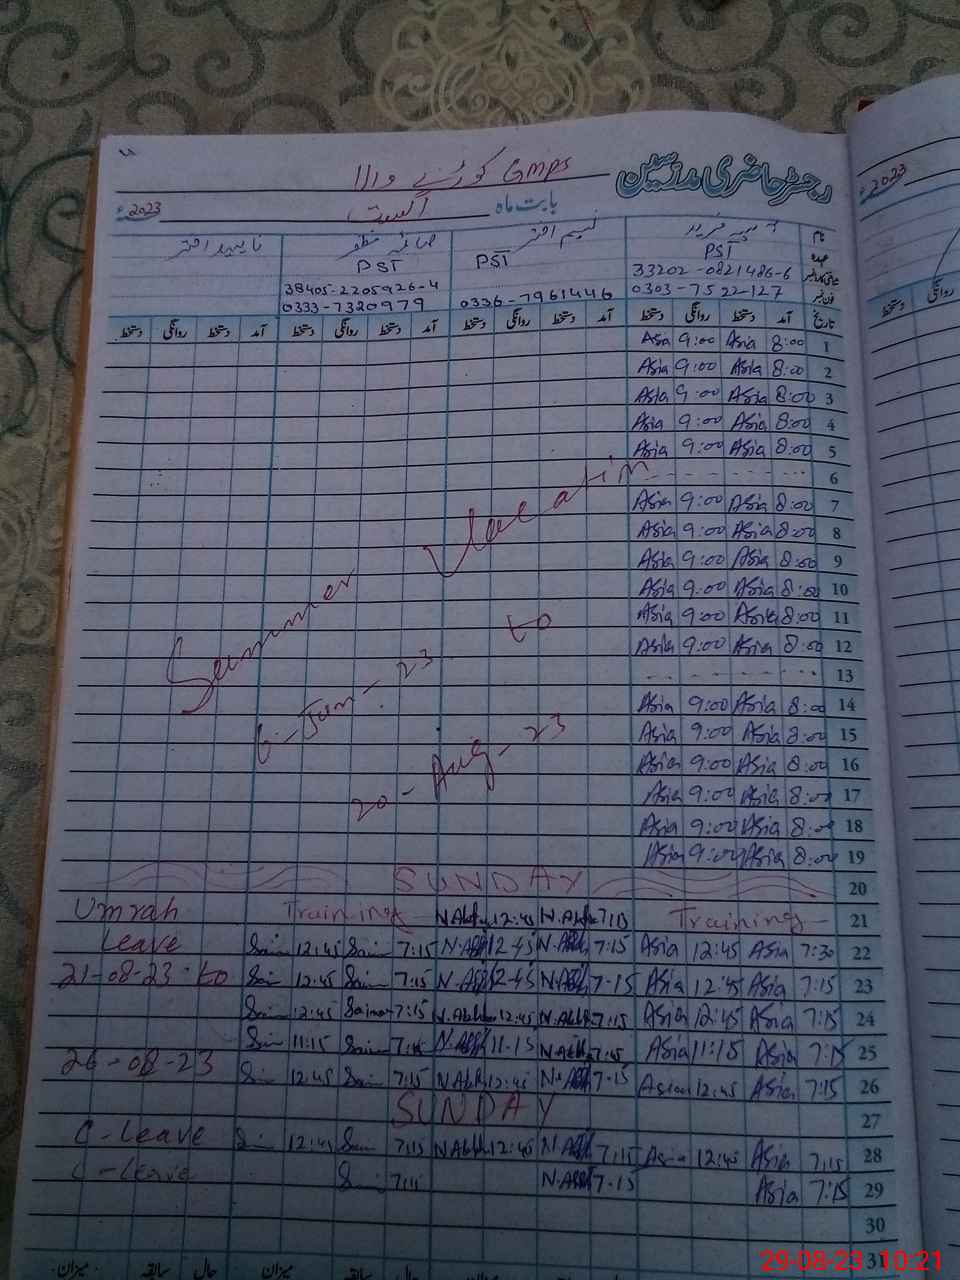 رجسٹر حاضری مدرسین GMPS کوڑے والا
بابت ماہ اگست 2023ء
2023
نام آسیہ فرید نسیم اختر صائمہ منظور ناہید اختر
عہدہ PST PST PST
شناختی کارڈ نمبر 33202-0821486-6 38405-2205926-4
فون نمبر 0303-7522127 0336-7961446 0333-7320979
تاریخ آمد دستخط روانگی دستخط آمد دستخط روانگی دستخط آمد دستخط روانگی دستخط آمد دستخط روانگی دستخط
روانگی دستخط
1 8:00 Asia 9:00 Asia
2 8:00 Asia 9:00 Asia
3 8:00 Asia 9:00 Asia
4 8:00 Asia 9:00 Asia
5 8:00 Asia 9:00 Asia
6
7 8:00 Asia 9:00 Asia
8 8:00 Asia 9:00 Asia
9 8:00 Asia 9:00 Asia
10 8:00 Asia 9:00 Asia
11 8:00 Asia 9:00 Asia
12 8:00 Asia 9:00 Asia
13
14 8:00 Asia 9:00 Asia
15 8:00 Asia 9:00 Asia
16 8:00 Asia 9:00 Asia
17 8:00 Asia 9:00 Asia
18 8:00 Asia 9:00 Asia
19 8:00 Asia 9:00 Asia
Summer Vacation
6-Jun-23 to
20-Aug-23
20 SUNDAY
21 Training 7:15 N.Akhtar 12:45 N.Akhtar Training Umrah
22 7:30 Asia 12:45 Asia 7:15 N.Akh 12-45 N.Akh 7:15 Saim 12:45 Saim Leave
23 7:15 Asia 12:45 Asia 7-15 N.Akh 12-45 N.Akh 7:15 Saim 12:45 Saim 21-08-23 to
24 7:15 Asia 12:45 Asia 7:15 N.Akh 12:45 N.Akh 7:15 Saima 12:45 Saim
25 7:15 Asia 11:15 Asia 7:15 N.Akh 11-15 N.Akh 7:15 Saim 11:15 Saim
26 7:15 Asia 12:45 Asia 7-15 N.Akh 12:45 N.Akh 7:15 Saim 12:45 Saim 26-08-23
27 SUNDAY
28 7:15 Asia 12:45 Asia 7:15 N.Akh 12:45 N.Akh 7:15 Saim 12:45 Saim C-Leave
29 7:15 Asia 7-15 N.Akh 7:15 Saim C-Leave
30
31
میزان سابقہ حال میزان سابقہ حال میزان سابقہ حال
29-08-23 10:21